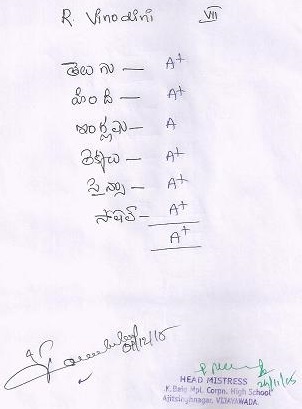 R. Vinodini VII
తెలుగు — A+
హింది — A+
ఇంగ్లీషు — A
లెక్కలు — A+
సైన్సు — A+
సోషల్ — A+
A+
/12/05
24/11/05
HEAD MISTRESS
K.Bala Mpl. Corpn. High School
Ajitsinghnagar, VIJAYAWADA.